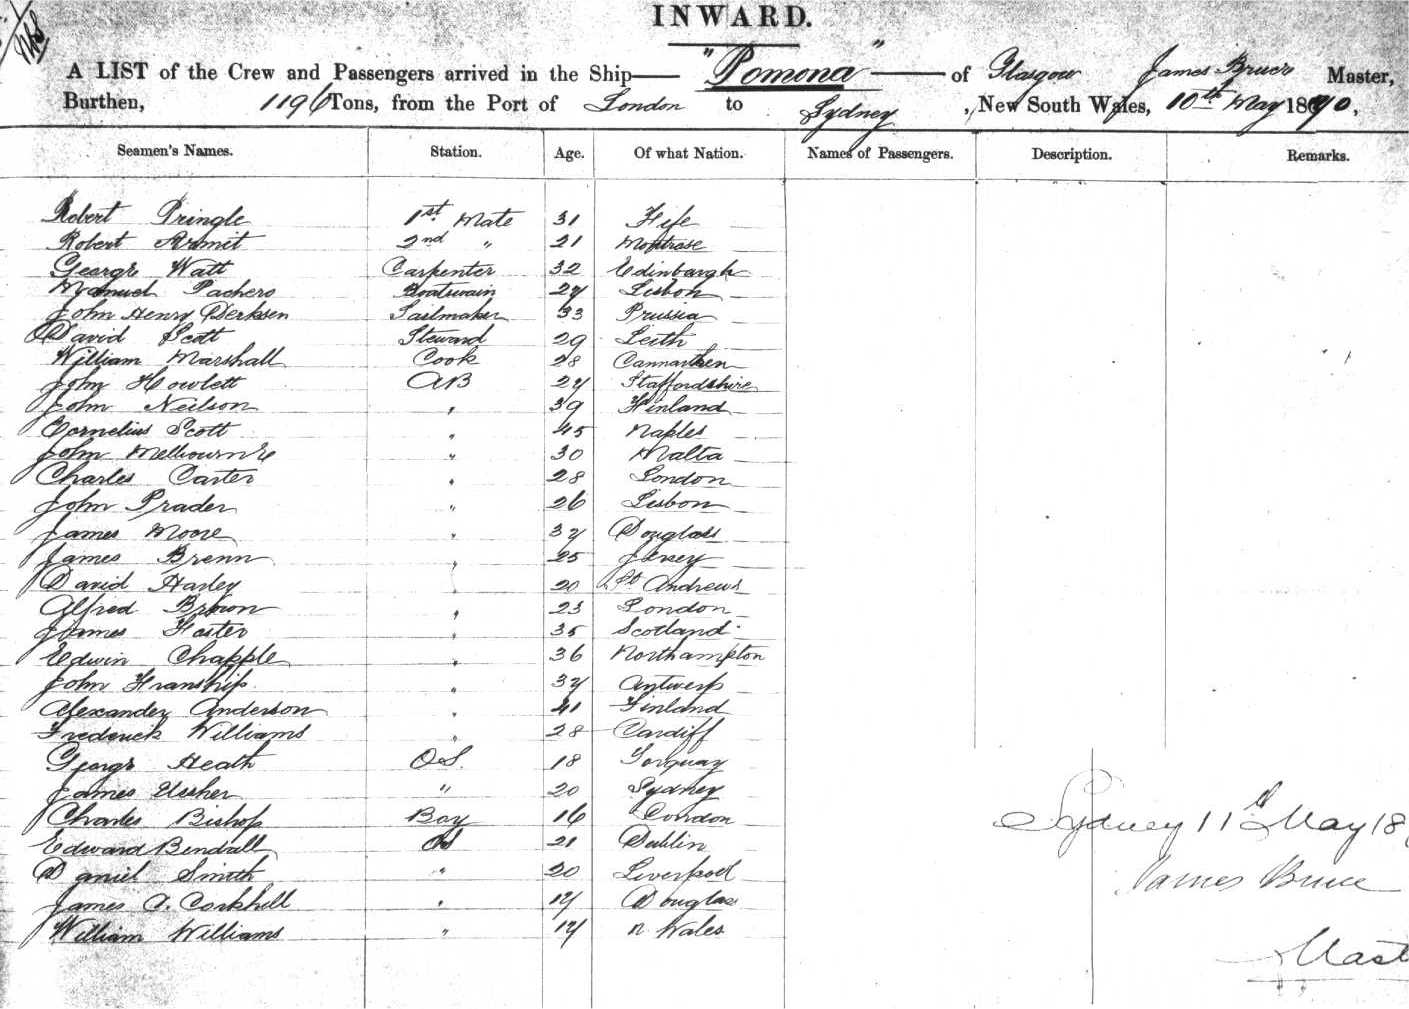 INWARD.
A LIST of the Crew and Passengers arrived in the Ship "Pomona" of Glasgow James Bruce Master,
Burthen, 1196 Tons, from the Port of London to Sydney, New South Wales, 10th May 1870,
Seamen's Names. Station. Age. Of what Nation. Names of Passengers. Description. Remarks.
Robert Pringle 1st Mate 31 Fife
Robert Armit 2nd " 21 Montrose
George Watt Carpenter 32 Edinburgh
Manuel Pachero Boatswain 27 Lisbon
John Henry Derksen Sailmaker 33 Prussia
David Scott Steward 29 Leith
William Marshall Cook 28 Carmarthen
John Howlett AB 27 Staffordshire
John Neilson " 39 Finland
Cornelius Scott " 45 Naples
John Melbourne " 30 Malta
Charles Carter " 28 London
John Prader " 26 Lisbon
James Moore " 37 Douglass
James Brenn " 25 Jersey
David Harley " 20 St Andrews
Alfred Brown " 23 London
James Foster " 35 Scotland
Edwin Chapple " 36 Northampton
John Franship " 37 Antwerp
Alexander Anderson " 41 Finland
Frederick Williams " 28 Cardiff
George Heath OS. 18 Torquay
James Ussher " 20 Sydney
Charles Bishop Boy 16 London
Edward Bendall OS 21 Dublin
Daniel Smith " 20 Liverpool
James A. Corkhill " 17 Douglas
William Williams " 17 N Wales
Sydney 11th May 18
James Bruce
Mast